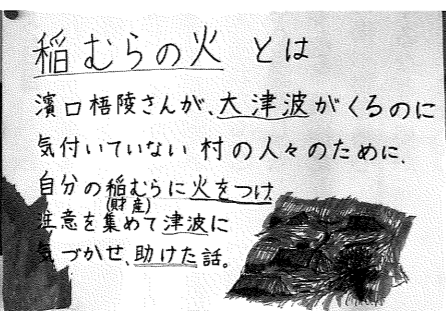 稲むらの火 とは
濱口梧陵さんが、大津波がくるのに
気付いていない 村の人々のために、
自分の稲むらに火をつけ
(財産)
注意を集めて津波に
気づかせ、助けた話。